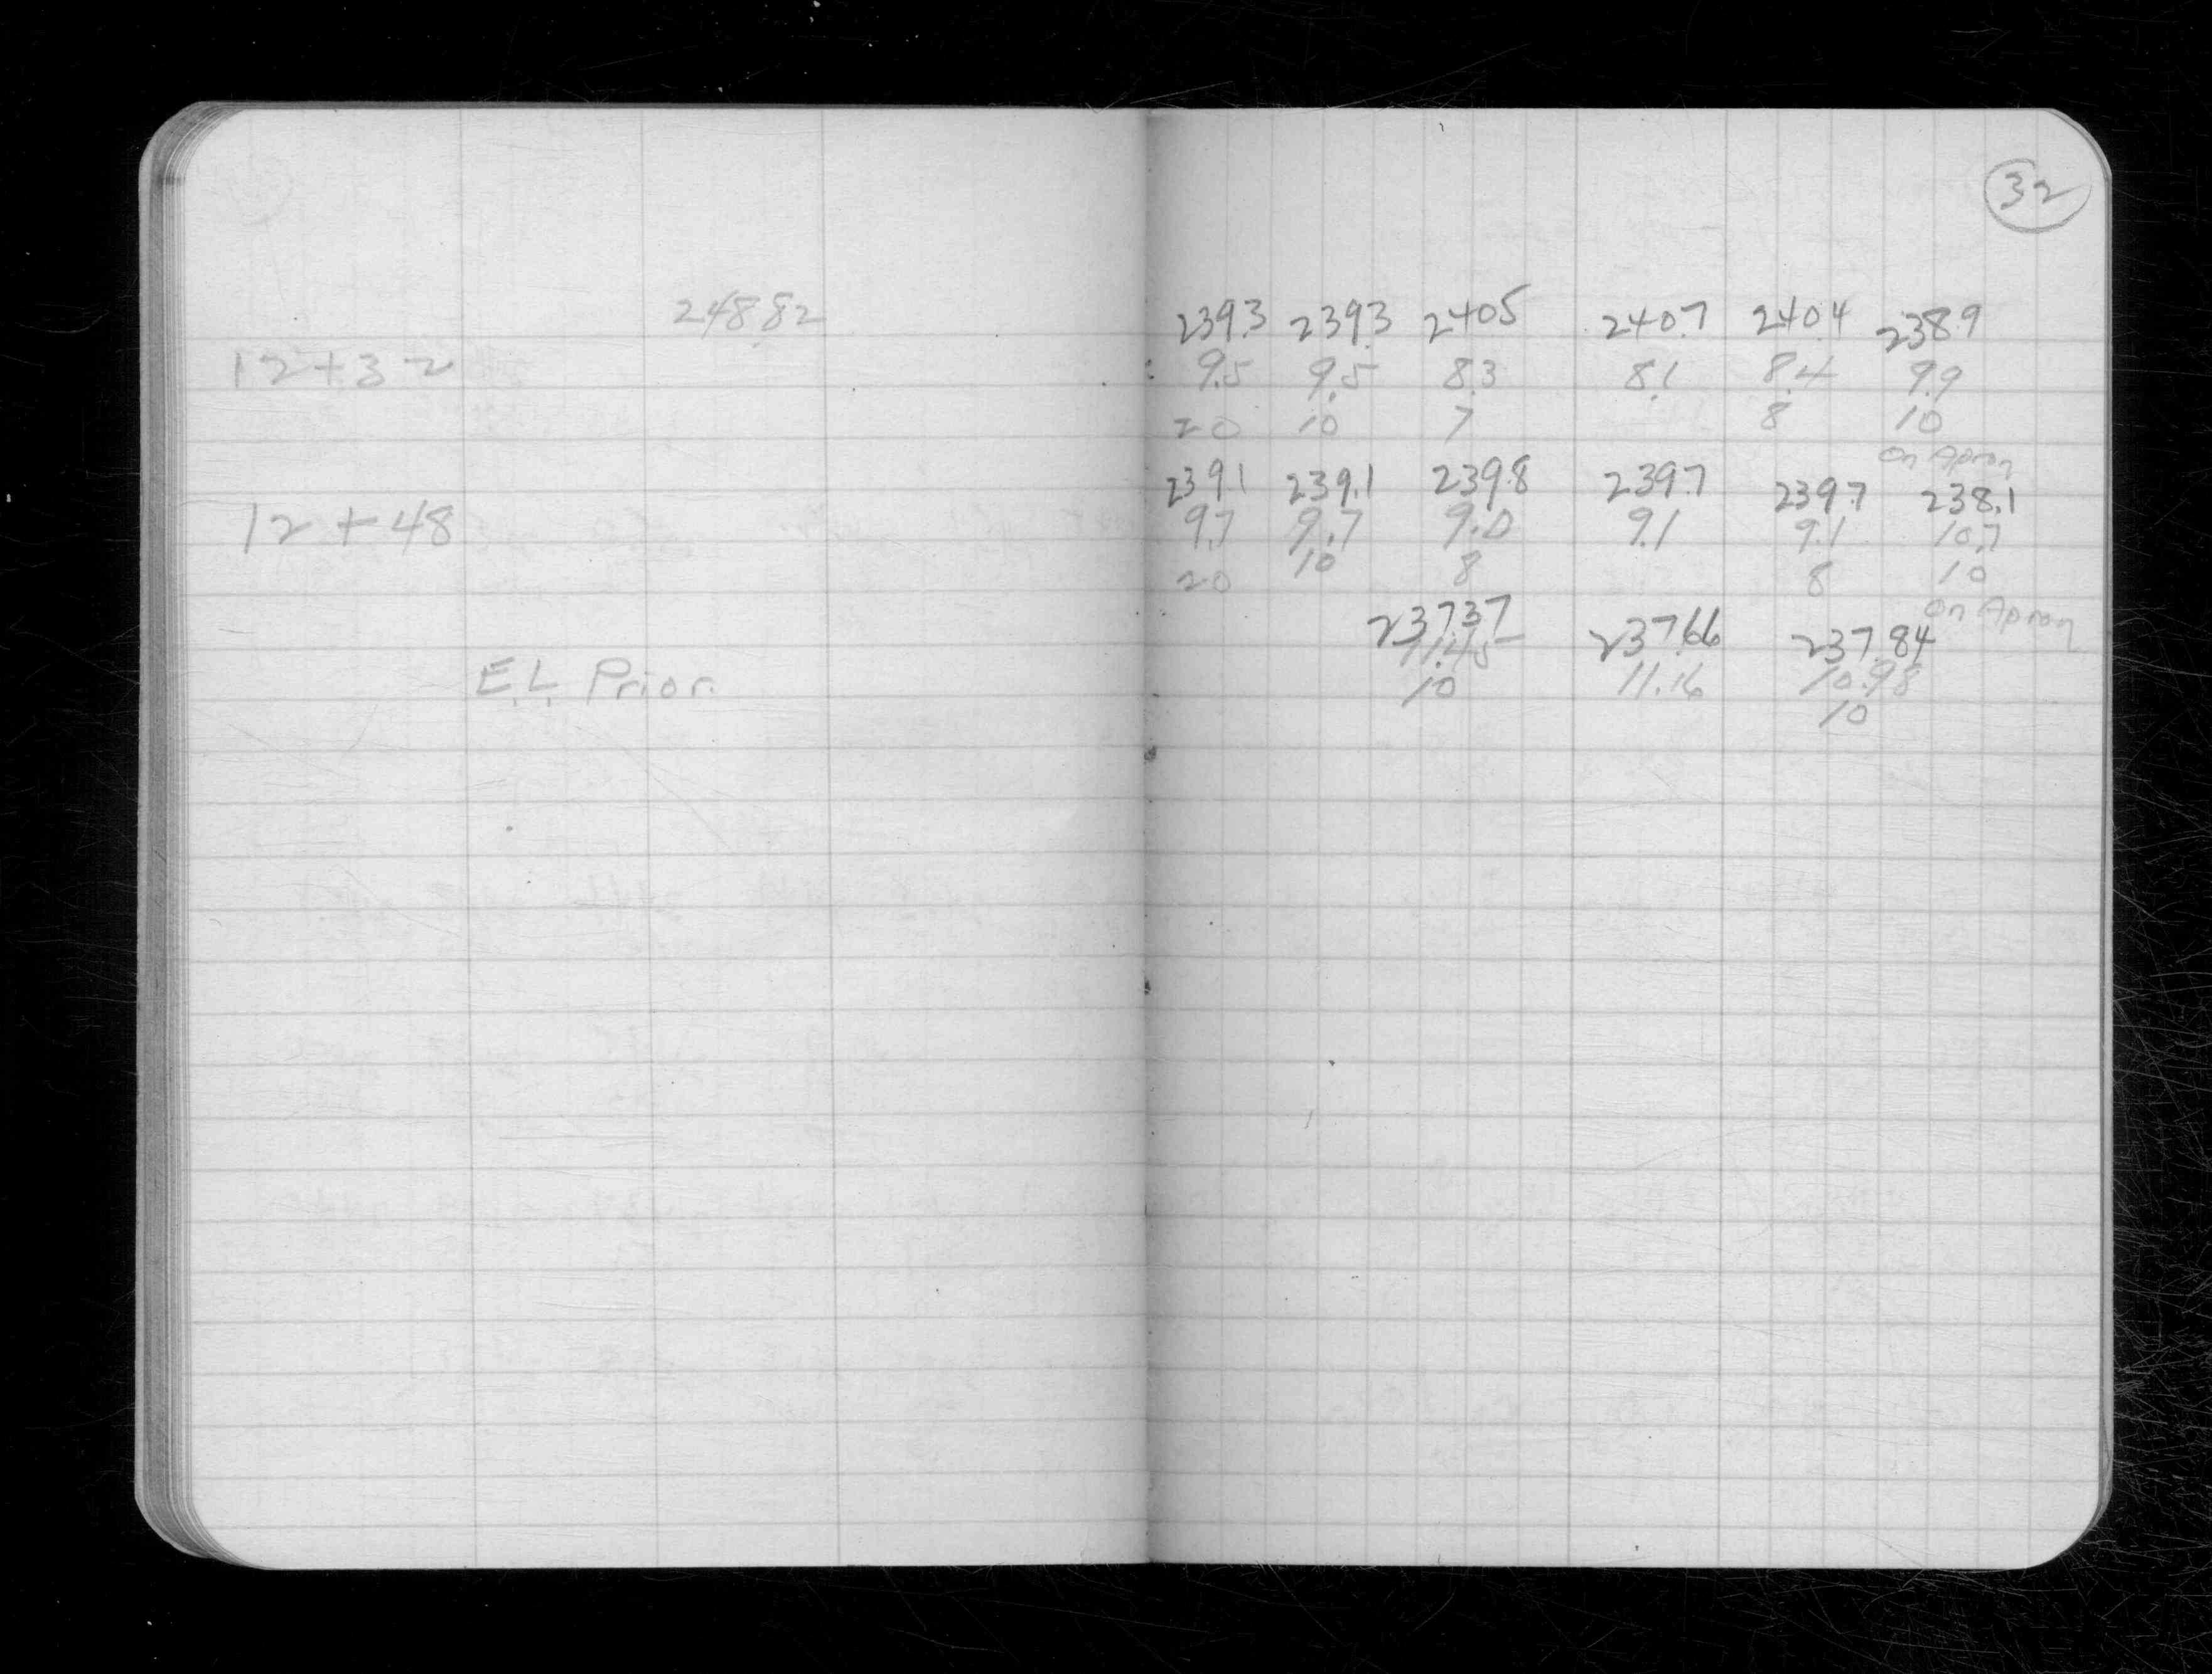 32
248.82
239.3 239.3 240.5 240.7 240.4 238.9
12+32
9.5 9.5 8.3 8.1 8.4 9.9
20 10 7 8 10
On Apron
239.1 239.1 239.8 239.7 239.7 238.1
12+48
9.7 9.7 9.0 9.1 9.1 10.7
20 10 8 8 10
On Apron
237.37 237.66 237.84
E.L. Prior.
11.45 11.16 10.98
10 10